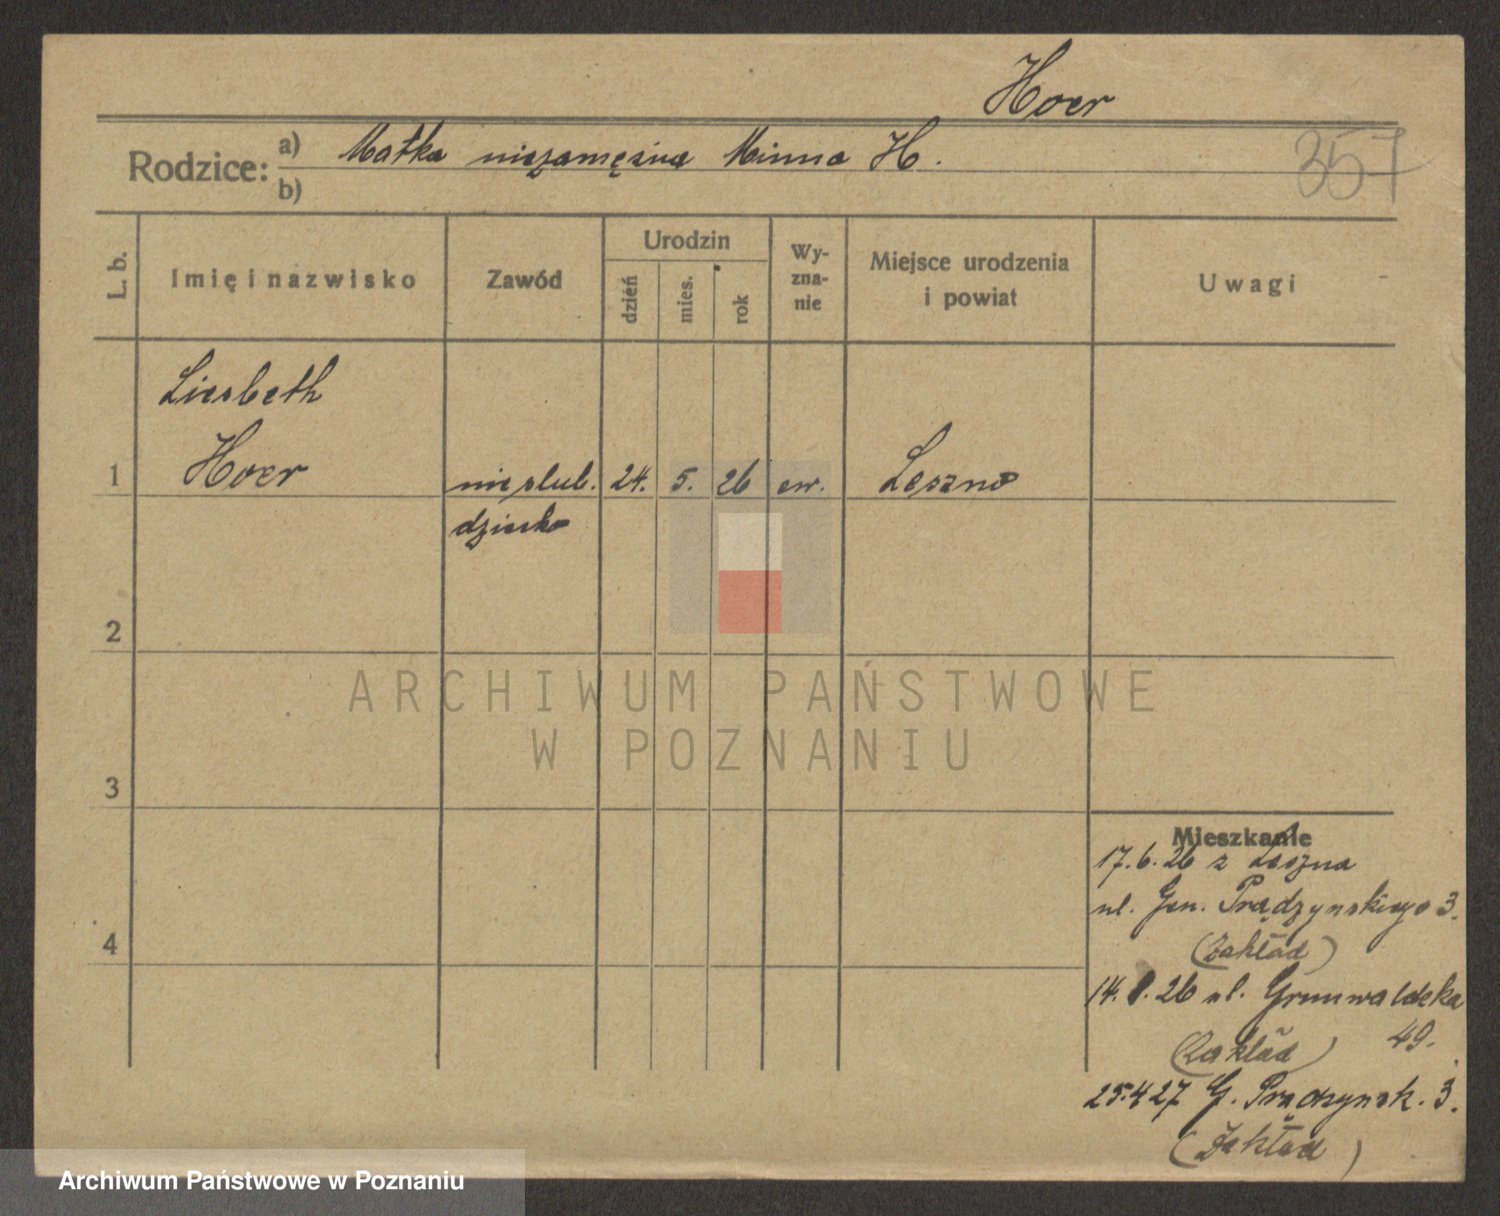 Hoer
357
Rodzice: a) Matka niezamężna Minna H.
b)
L. b.
Imię i nazwisko
Zawód
Urodzin
dzień
mies.
rok
Wy-
zna-
nie
Miejsce urodzenia
i powiat
Uwagi
Liesbeth
1 Hoer nieślub. 24. 5. 26 ew. Leszno
dziecko
2
3
4
Mieszkanie
17.6.26 z Leszna
ul. Gen. Prądzyńskiego 3.
(Zakład)
14. 8. 26 ul. Grunwaldzka
49.
(Zakład)
25.4 27 G. Prądzyńsk. 3.
(Zakład)
ARCHIWUM PAŃSTWOWE
W POZNANIU
Archiwum Państwowe w Poznaniu